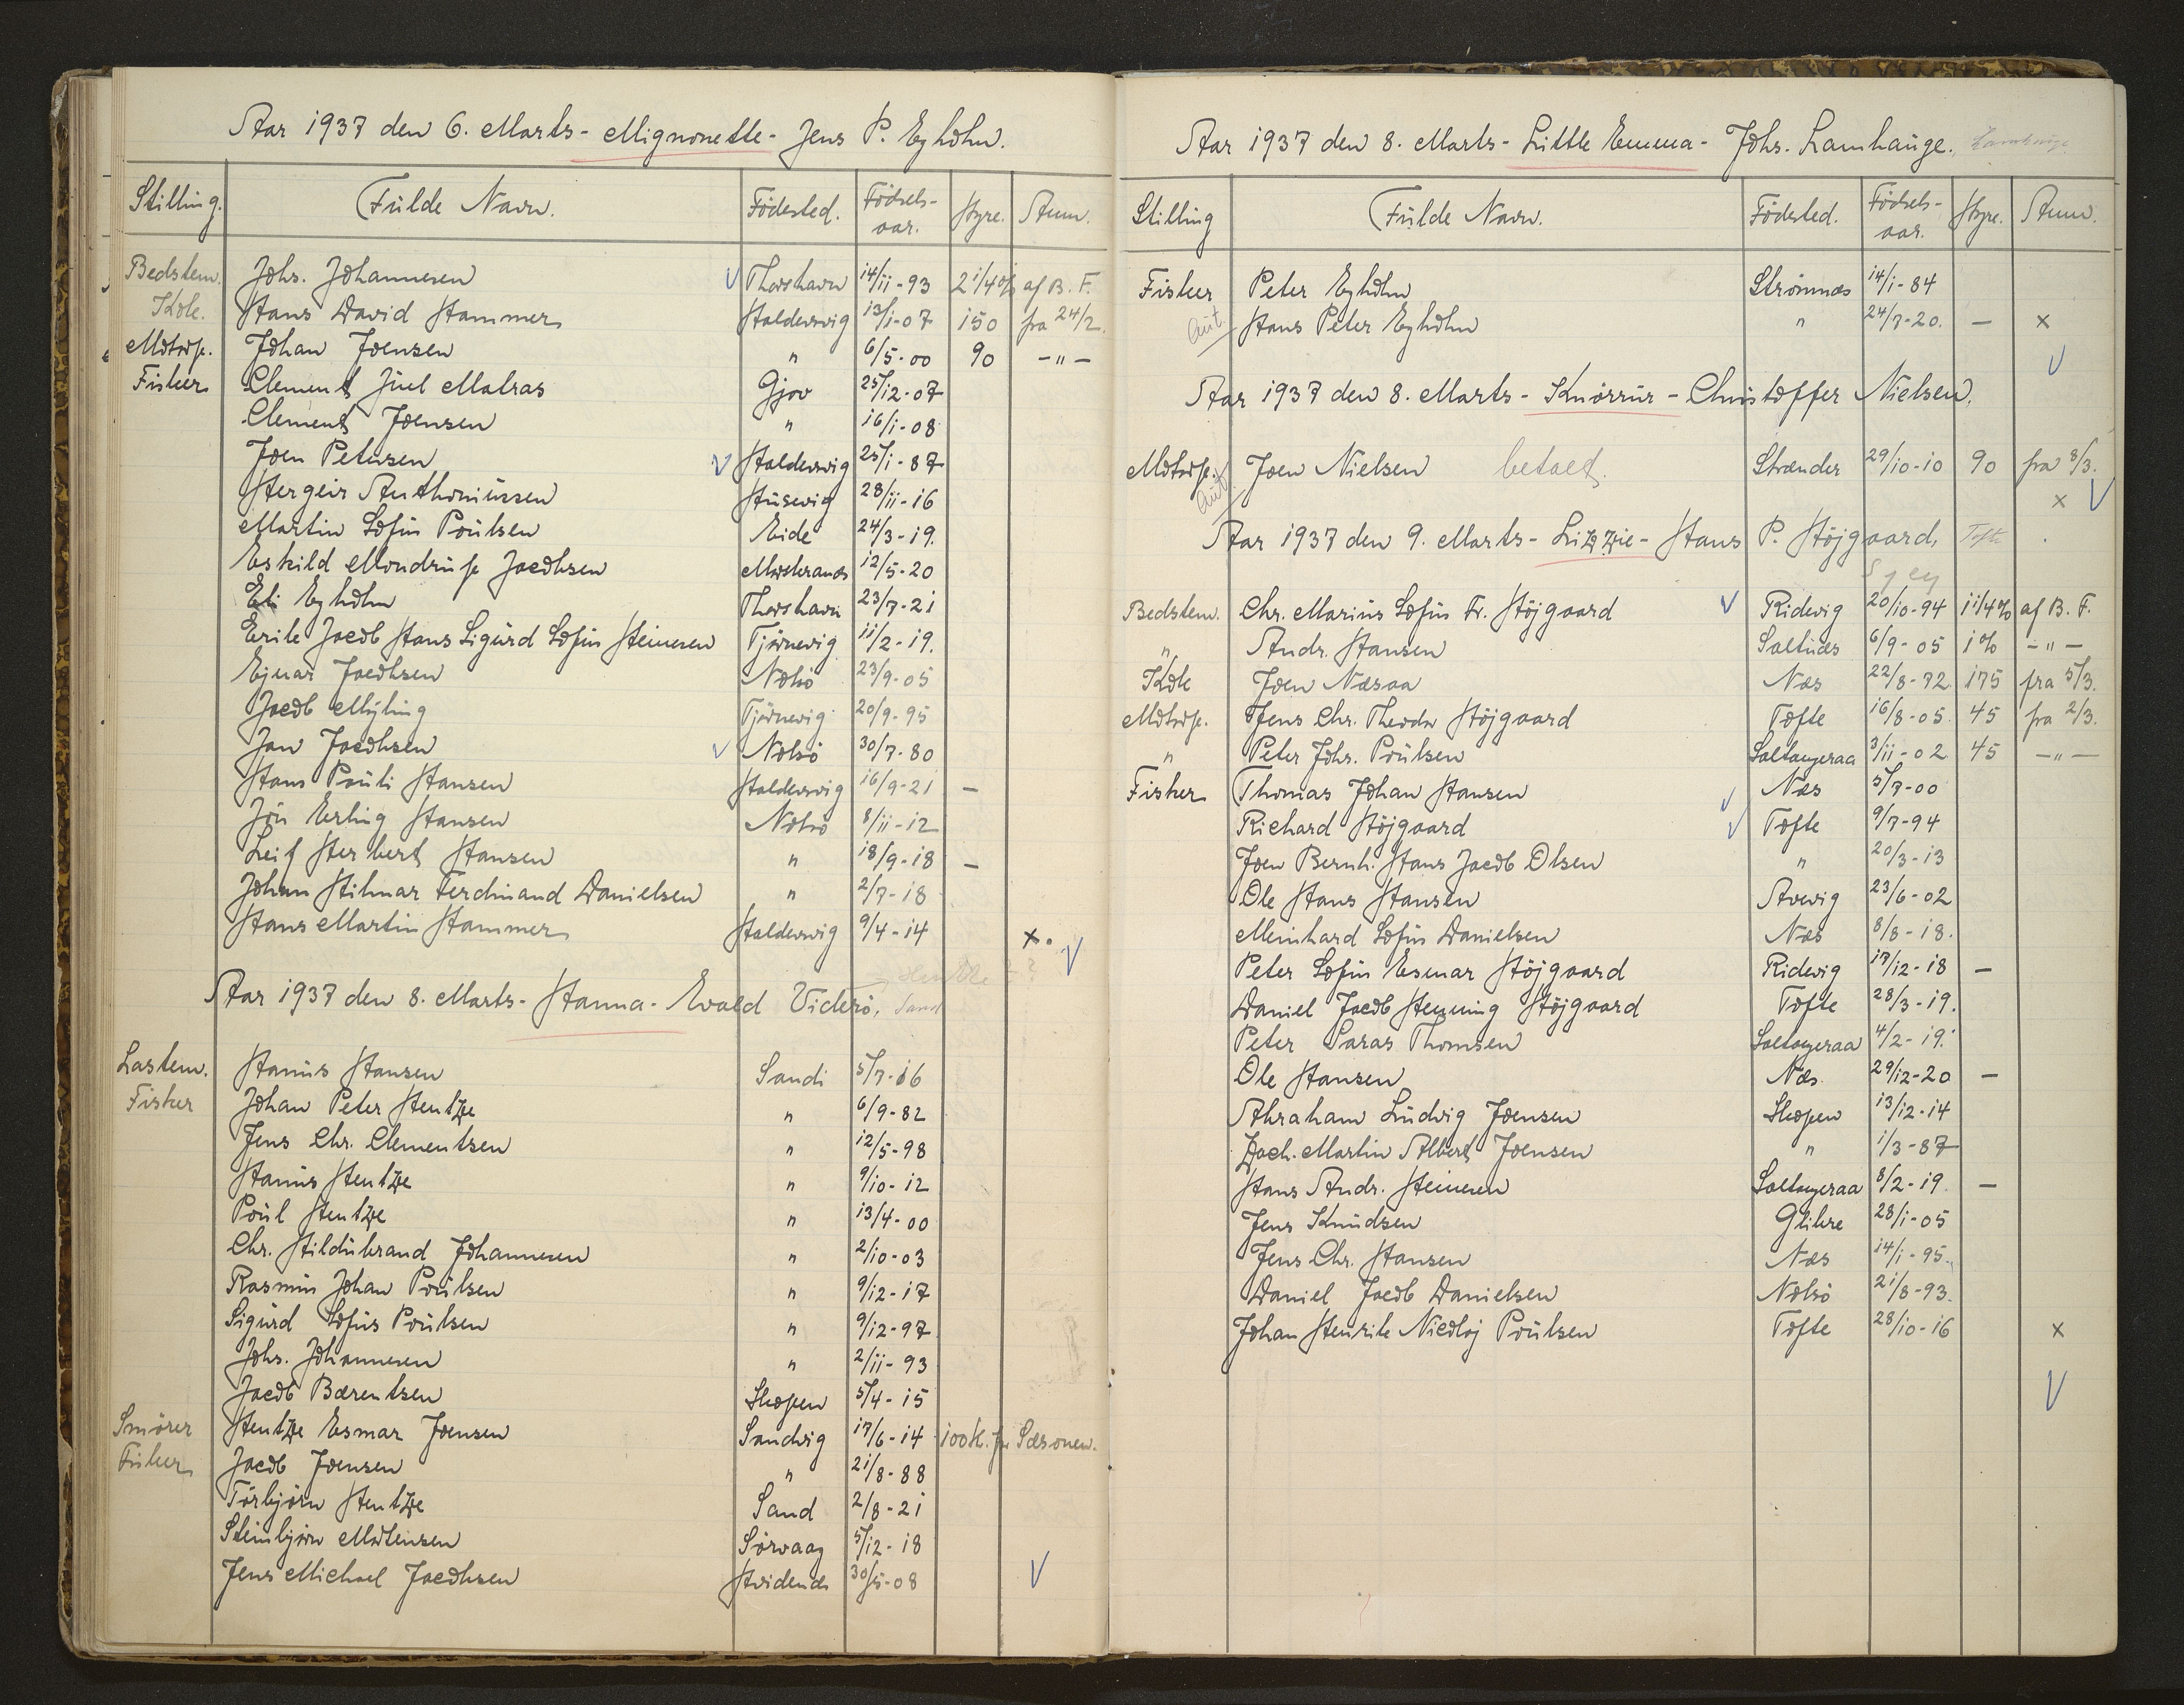 Aar 1937 den 6. Marts - Mignonette - Jens P. Eyholm.
Stilling. Fulde Navn. Födested. Födsels-aar. Hyre. Anm.
Bedstem. Johs. Johannesen Thorshavn 14/11-93 2 1/4 % af B. F.
Kok. Hans David Hammer Haldersvig 13/1-07 150 fra 24/2.
Motorp. Johan Joensen " 6/5-00 90 -"-
Fisker Clement Juel Malras Gjov 25/12-07
Clement Joensen " 16/1-08
Joen Petersen Haldersvig 25/1-87
Hergeir Anthoniussen Husevig 28/11-16
Martin Sofus Poulsen Eide 24/3-19.
Eskild Mondrup Jacobsen 12/5-20
Eli Eyholm Thorshavn 23/7-21
Erik Jacob Hans Sigurd Sofus Heinesen Tjörnevig 11/2-19.
Ejnar Jacobsen Nolsö 23/9-05
Jacob Mýling Tjörnevig 20/9-95
Jan Jacobsen Nolsö 30/7-80
Hans Pauli Hansen Haldersvig 16/9-21 -
Jón Erling Hansen Nolsö 8/11-12
Leif Herbert Hansen " 18/9-18 -
Johan Hilmar Ferdinand Danielsen " 2/7-18
Hans Martin Hammer Haldersvig 9/4-14 x.
Aar 1937 den 8. Marts - Hanna - Evald Viderö. Sand
Lastem. Hanus Hansen Sandi 5/7-16
Fisker Johan Peter Hentze " 6/9-82
Jens Chr. Clementsen " 12/5-98
Hanus Hentze " 9/10-12
Poul Hentze " 13/4-00
Chr. Hildubrand Johannesen " 2/10-03
Rasmus Johan Poulsen " 9/12-17
Sigurd Sofus Poulsen " 9/12-97
Johs. Johannesen " 2/11-93
Jacob Bærentsen Skopen 5/4-15
Smörer Hentze Esmar Joensen Sandvig 17/6-14 100 Kr. for Sæsonen.
Fisker Jacob Joensen " 21/8-88
Torbjörn Hentze Sand 2/8-21
Steinbjörn Mortensen Sörvaag 5/12-18
Jens Michael Jacobsen Hvidenæs 30/5-08
Aar 1937 den 8. Marts - Little Emma - Johs. Lamhauge. Lamhauge
Stilling Fulde Navn. Födested. Födsels-aar. Hyre. Anm.
Fisker Peter Eyholm Strömnæs 14/1-84
Aut. Hans Peter Eyholm " 24/7-20. - x
Aar 1937 den 8. Marts - Knörrur - Christoffer Nielsen.
Motorp. Joen Nielsen betalt. Strænder 29/10-10 90 fra 8/3.
Aut. x
Aar 1937 den 9. Marts - Lizzie - Hans P. Höjgaard, Tofte
Bedstem. Chr. Marius Sofus Fr. Höjgaard Ridevig 20/10-94 1 1/4 % af B. F.
" Andr. Hansen Saltnæs 6/9-05 1 % -"-
Kok Joen Næsaa Næs 22/8-72 175 fra 5/3.
Motorp. Jens Chr. Theodor Höjgaard Tofte 16/8-05. 45 fra 2/3.
" Peter Johs. Poulsen Saltangeraa 3/11-02 45 -"-
Fisker Thomas Johan Hansen Næs 5/7-00
Richard Höjgaard Tofte 9/7-94
Joen Bernh. Hans Jacob Olsen " 20/3-13
Ole Hans Hansen Arevig 23/6-02
Meinhard Sofus Danielsen Næs 8/8-18.
Peter Sofus Esmar Höjgaard Ridevig 17/12-18 -
Daniel Jacob Henning Höjgaard Tofte 28/3-19.
Peter Saras Thomsen Saltangeraa 4/2-19.
Ole Hansen Næs 29/12-20 -
Abraham Ludvig Joensen Skopen 13/12-14
Zach. Martin Albert Joensen " 1/3-87
Hans Andr. Heinesen Saltangeraa 8/2-19. -
Jens Knudsen Glibre 28/1-05
Jens Chr. Hansen Næs 14/1-95.
Daniel Jacob Danielsen Nolsö 21/8-93.
Johan Henrik Nicolaj Poulsen Tofte 28/10-16 x